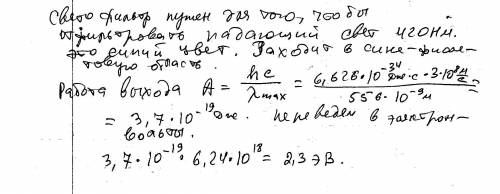 Светофильтр нужен для того, чтобы
отфильтровать падающий свет 420нм.
это синий цвет. Заходит в сине-фиоле-
товую область.
Работа выхода A = hc / λmax = 6,626·10⁻³⁴ Дж·с · 3·10⁸ м/с / 556·10⁻⁹ м
= 3,7·10⁻¹⁹ Дж. переведем в электрон-
вольты.
3,7·10⁻¹⁹ · 6,24·10¹⁸ = 2,3 эВ.